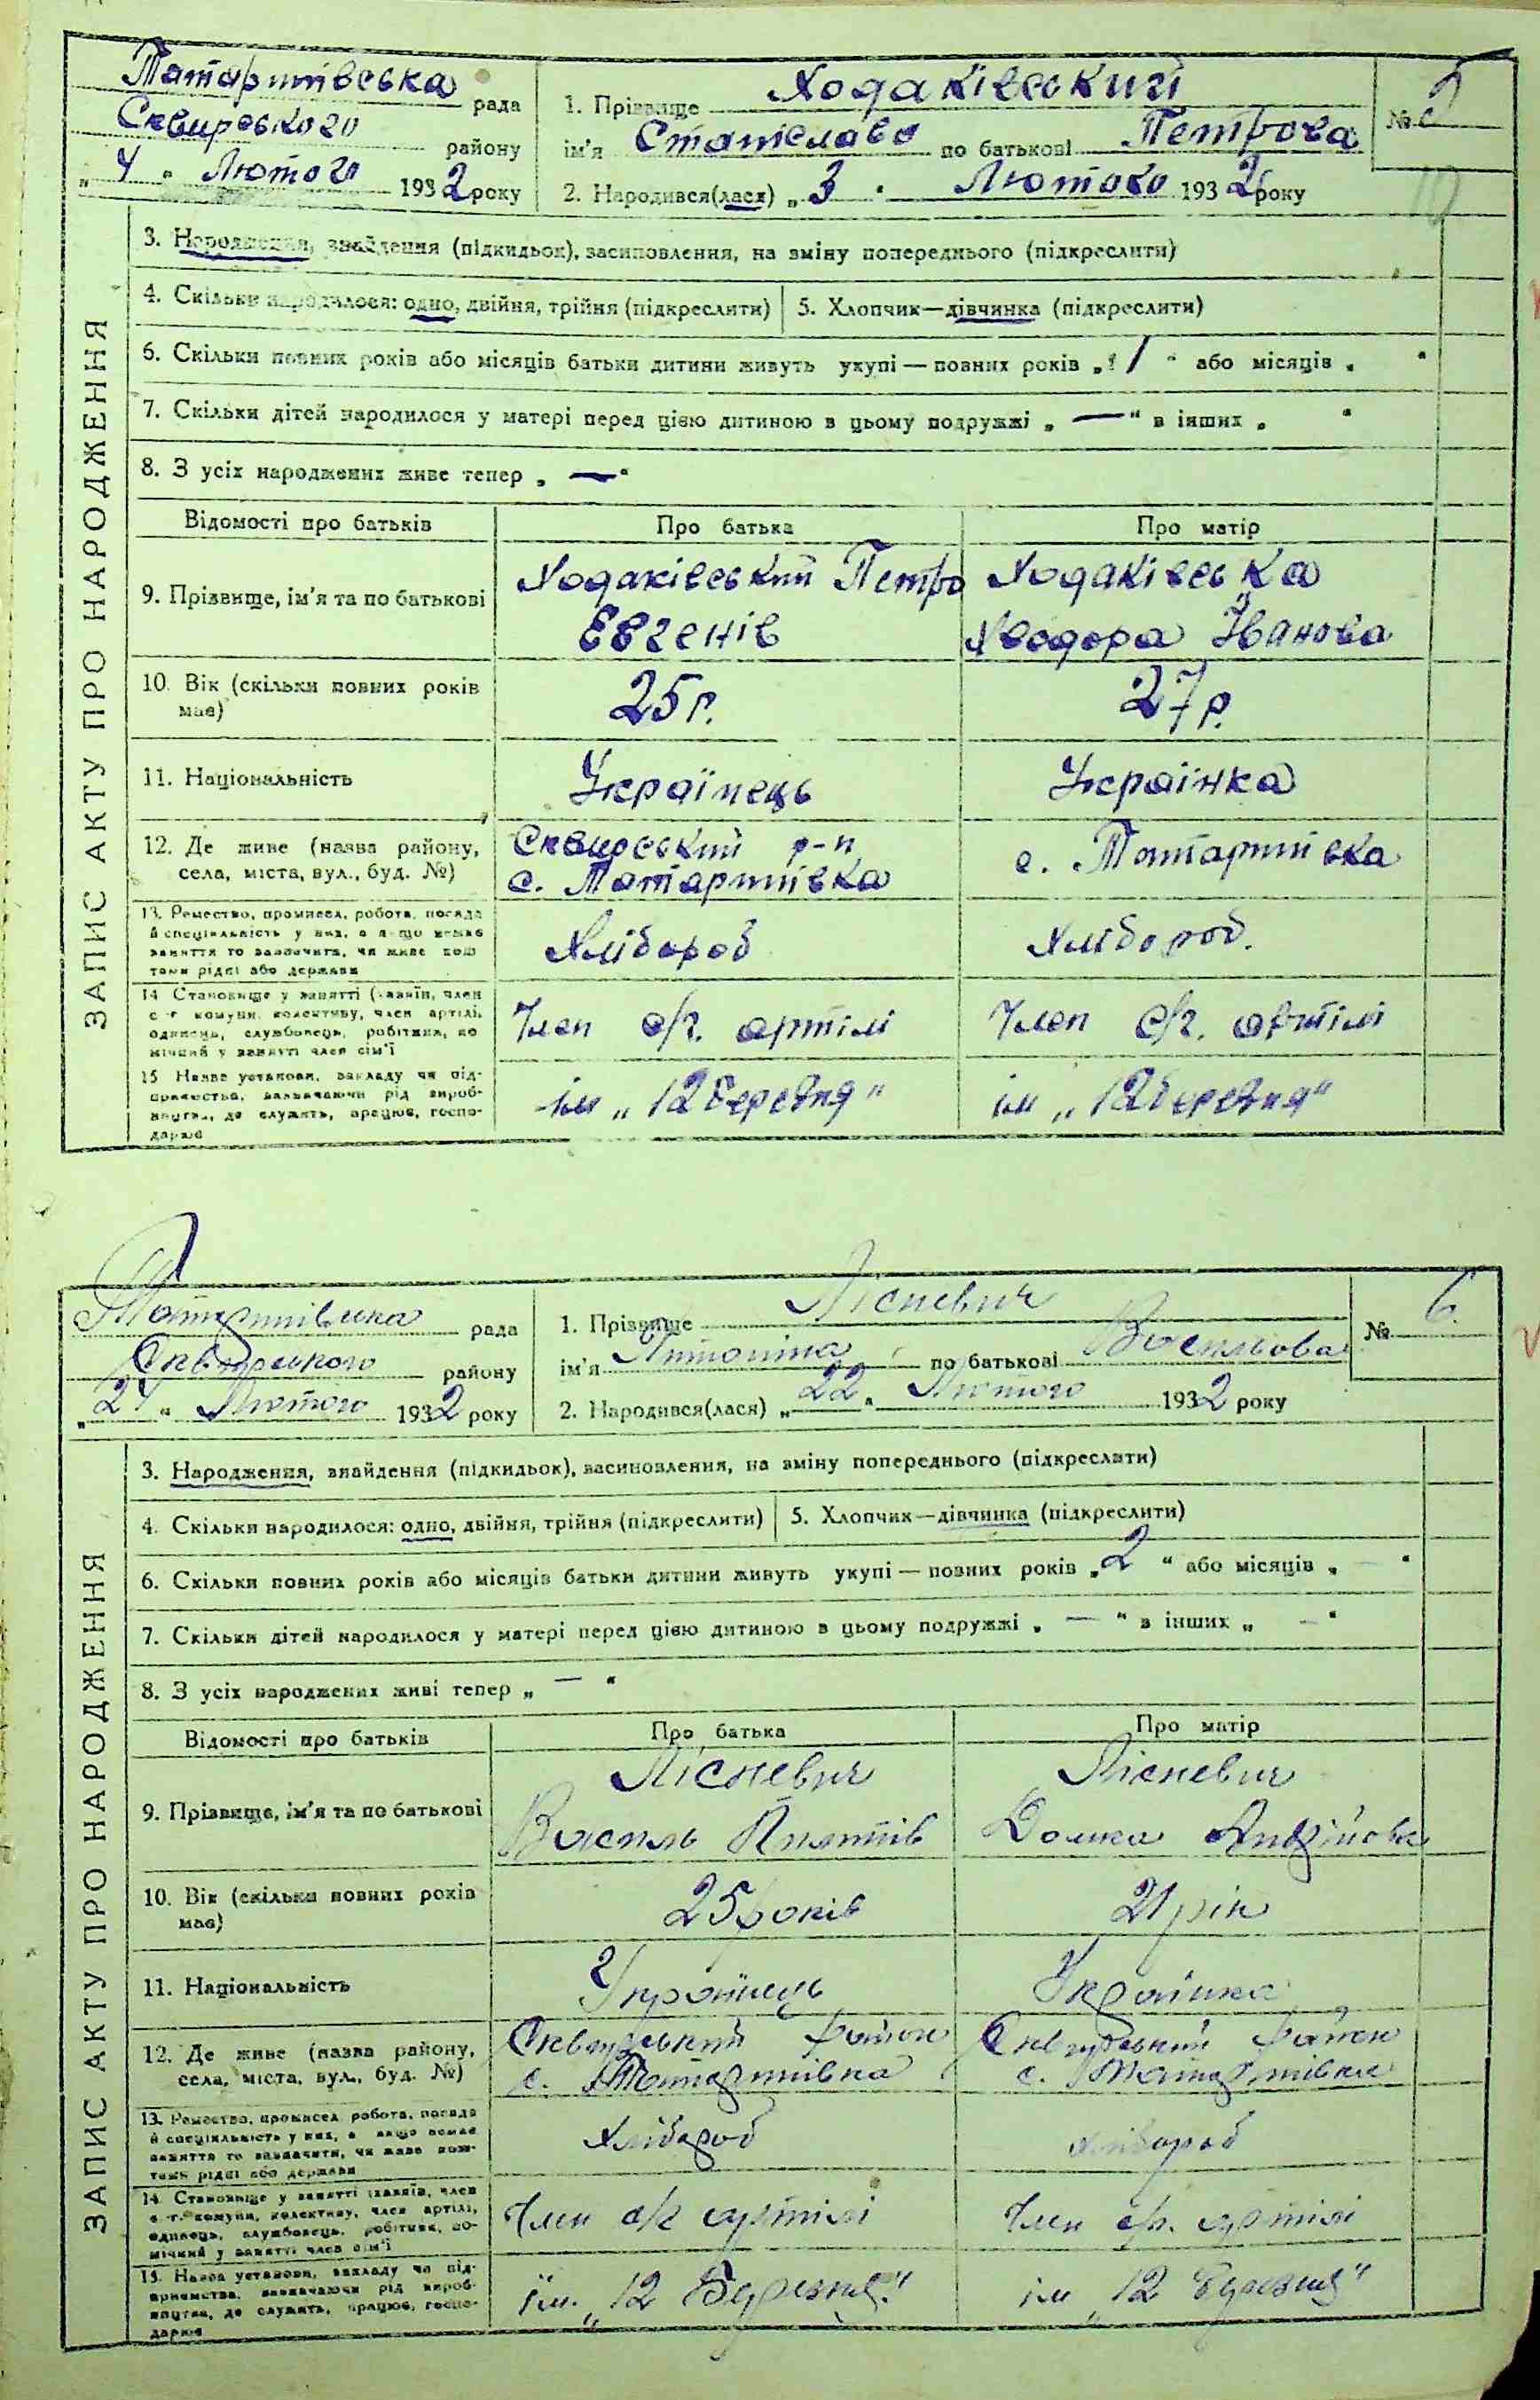 Татаринівська рада
Сквирського району
„4" Лютого 1932 року
1. Прізвище Ходаківський
№ 5
ім'я Станіслава по батькові Петрова
2. Народився(лася) „3" Лютого 1932 року
ЗАПИС АКТУ ПРО НАРОДЖЕННЯ
3. Народження, знайдення (підкидьок), засиновлення, на зміну попереднього (підкреслити)
4. Скільки народилося: одно, двійня, трійня (підкреслити)
5. Хлопчик—дівчинка (підкреслити)
6. Скільки повних років або місяців батьки дитини живуть укупі — повних років „1" або місяців „ "
7. Скільки дітей народилося у матері перед цією дитиною в цьому подружжі „—" в інших „ "
8. З усіх народжених живе тепер „—"
Відомості про батьків
Про батька
Про матір
9. Прізвище, ім'я та по батькові
Ходаківський Петро
Евгенів
Ходаківська
Хведора Іванова
10. Вік (скільки повних років
має)
25 р.
27 р.
11. Національність
Українець
Українка
12. Де живе (назва району,
села, міста, вул., буд. №)
Сквирський р-н
с. Татаринівка
с. Татаринівка
13. Ремество, промисел, робота, посада
й спеціяльність у них, а якщо немає
заняття то зазначити, чи живе кош
тами рідні або держави
Хлібороб
Хлібороб.
14 Становище у занятті (хазяїн, член
с.-г. комуни, колективу, член артілі,
одинець, службовець, робітник, по
мічний у занятті член сім'ї
Член с/г. артілі
Член с/г. артілі
15 Назва установи, закладу чи під-
приємства, зазначаючи рід вироб-
ництва, де служить, працює, госпо-
дарює
ім „12 березня"
ім „12 березня"
Татаринівська рада
Сквирського району
„24" Лютого 1932 року
1. Прізвище Лісневич
№ 6.
ім'я Антоніна по батькові Васильова
2. Народився(лася) „22" Лютого 1932 року
ЗАПИС АКТУ ПРО НАРОДЖЕННЯ
3. Народження, знайдення (підкидьок), засиновлення, на зміну попереднього (підкреслити)
4. Скільки народилося: одно, двійня, трійня (підкреслити)
5. Хлопчик—дівчинка (підкреслити)
6. Скільки повних років або місяців батьки дитини живуть укупі — повних років „2" або місяців „—"
7. Скільки дітей народилося у матері перед цією дитиною в цьому подружжі „—" в інших „—"
8. З усіх народжених живі тепер „—"
Відомості про батьків
Про батька
Про матір
9. Прізвище, ім'я та по батькові
Лісневич
Василь
Лісневич
Домка Андрійова
10. Вік (скільки повних років
має)
25 років
21 рік
11. Національність
Українець
Українка
12. Де живе (назва району,
села, міста, вул., буд. №)
Сквирський район
с. Татаринівка
Сквирський район
с. Татаринівка
13. Ремество, промисел, робота, посада
й спеціяльність у них, а якщо немає
заняття то зазначити, чи живе кош-
тами рідні або держави
Хлібороб
хлібороб
14. Становище у занятті (хазяїн, член
с.-г. комуни, колективу, член артілі,
одинець, службовець, робітник, по-
мічний у занятті член сім'ї
Член с/г артілі
Член с/г. артілі
15. Назва установи, закладу чи під-
приємства, зазначаючи рід вироб-
ництва, де служить, працює, госпо-
дарює
ім. „12 Березня"
ім „12 Березня"